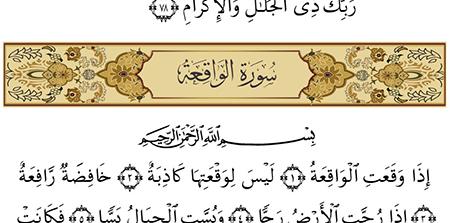 رَبِّكَ ذِى ٱلْجَلَـٰلِ وَٱلْإِكْرَامِ ﴿٧٨﴾
سُورَةُ الْوَاقِعَةِ
بِسْمِ ٱللَّهِ ٱلرَّحْمَـٰنِ ٱلرَّحِيمِ
إِذَا وَقَعَتِ ٱلْوَاقِعَةُ ﴿١﴾ لَيْسَ لِوَقْعَتِهَا كَاذِبَةٌ ﴿٢﴾ خَافِضَةٌ رَّافِعَةٌ
﴿٣﴾ إِذَا رُجَّتِ ٱلْأَرْضُ رَجًّا ﴿٤﴾ وَبُسَّتِ ٱلْجِبَالُ بَسًّا ﴿٥﴾ فَكَانَتْ